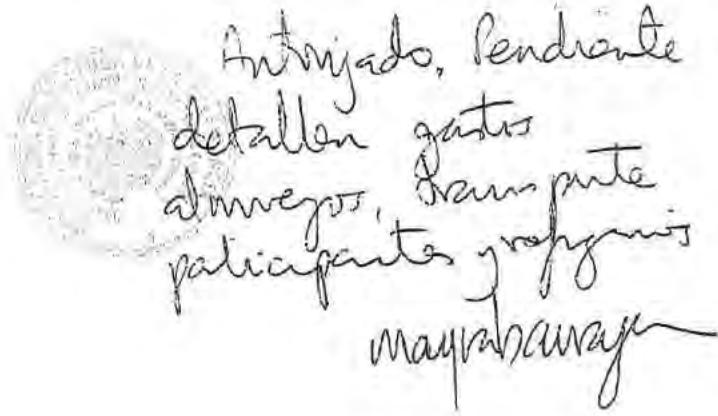 Autorizado, Pendiente
detallen gastos
almuerzos, transporte
participantes y refrigerios